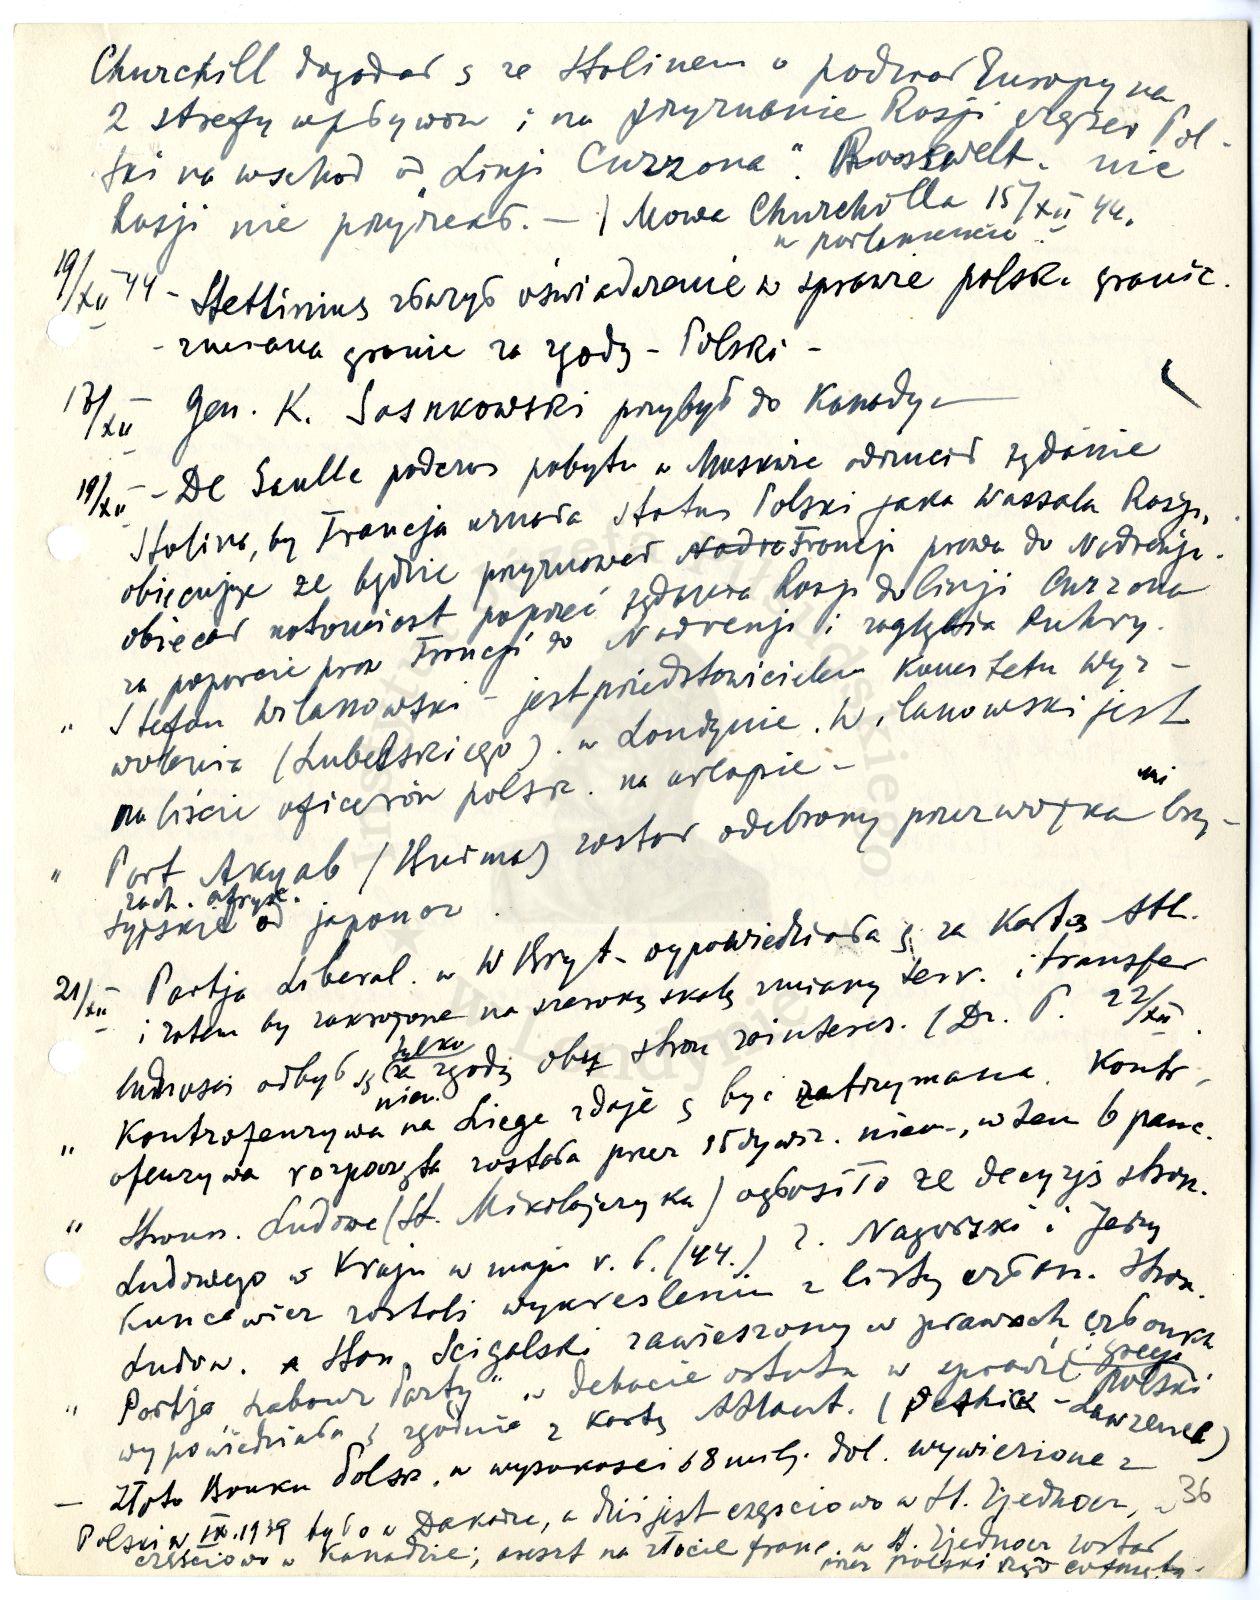 Churchill dogadał ş ze Stalinem o podział Europy na
2 strefy wpływów i na przyznanie Rosji części Pol-
ski na wschód od „Linji Curzona". Roosevelt. nic
Rosji nie przyrzekł. — (Mowa Churchilla 15/XII 44.
w parlamencie.
19/XII 44 - Stettinius złożył oświadczenie w sprawie polsk. granic.
- zmiana granic za zgodą - Polski -
17/XII Gen. K. Sosnkowski przybył do Kanady —
19/XII - De Gaulle podczas pobytu w Moskwie odrzucił żądanie
Stalina, by Francja uznała status Polski jako wassala Rosji,
obiecując że będzie przyznawał Francji prawa do Nadrenji.
obiecał natomiast poprzeć żądania Rosji do linji Curzona
za poparcie praw Francji do Nadrenji i zagłębia Ruhry.
" Stefan Wilanowski - jest przedstawicielem Komitetu Wyz-
wolenia (Lubelskiego). w Londynie. Wilanowski jest
na liście oficerów polsk. na urlopie -
" Port Akyab (Burma) został odebrany przez wojska mi bry-
zach. afryk.
tyjskie od japonów.
21/XII Partja Liberal. w W Bryt. wypowiedziała ş za Kartą Atl.
i zatem by zakrojone na szeroką skalę zmiany teryt. i transfer
ludności odbył ş tylko za zgodą obu stron zainteres. (Dz. P. 22/XII.
" Kontrofenzywa niem. na Liege zdaje ş być zatrzymana. Kontr-
ofenzywa rozpoczęta została przez 15 dywiz. niem., w tem 6 panc.
" Stronn. Ludowe (St. Mikołajczyka) ogłosiło że decyzją stron.
Ludowego w Kraju w maju r. b. (44.) Z. Nagórski i Jerzy
Kuncewicz zostali wykreśleni z listy człon. Stron.
Ludow. a Stan. Scigalski zawieszony w prawach członka
" Partja „Labour Party" w debacie ostatn. w sprawie Grecji i Polski
wypowiedziała ş zgodnie z Kartą Atlant. (Pethick-Lawrence)
— Złoto Banku Polsk. w wysokości 68 milj. dol. wywiezione z
Polski w IX.1939 było w Dakarze, a dziś jest częściowo w St. Zjednocz., a 36
częściowo w Kanadzie; areszt na złocie franc. w St. Zjednocz został
przez polski rząd cofnięty.